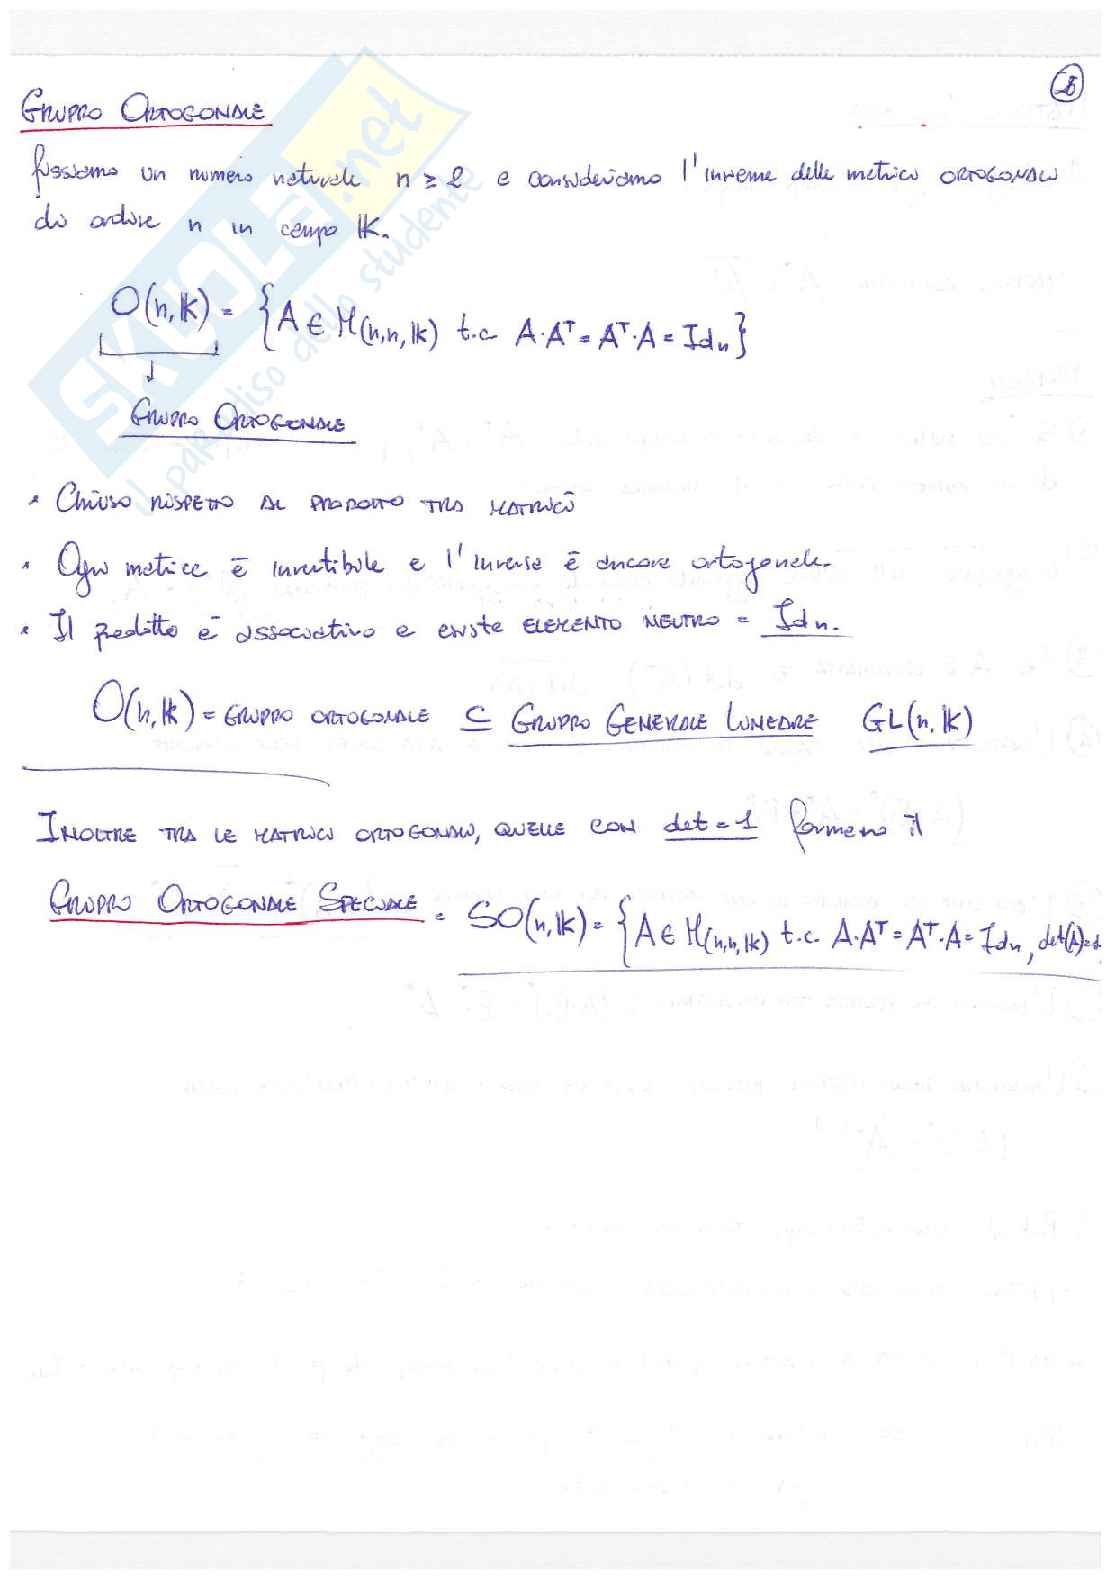 8
GRUPPO ORTOGONALE
fissiamo un numero naturale n ≥ 2 e consideriamo l'insieme delle matrici ORTOGONALI
di ordine n in campo K.
O(n,K) = {A ∈ M(n,n,K) t.c. A·Aᵀ = Aᵀ·A = Idₙ}
↓
GRUPPO ORTOGONALE
• CHIUSO RISPETTO AL PRODOTTO TRA MATRICI
• Ogni matrice è invertibile e l'inversa è ancora ortogonale.
• Il prodotto è associativo e esiste ELEMENTO NEUTRO = Idₙ.
O(n,K) = GRUPPO ORTOGONALE ⊆ GRUPPO GENERALE LINEARE GL(n,K)
INOLTRE TRA LE MATRICI ORTOGONALI, QUELLE CON det = 1 formano il
GRUPPO ORTOGONALE SPECIALE = SO(n,K) = {A ∈ M(n,n,K) t.c. A·Aᵀ = Aᵀ·A = Idₙ, det(A)=1
SKUOLA.net
il paradiso dello studente